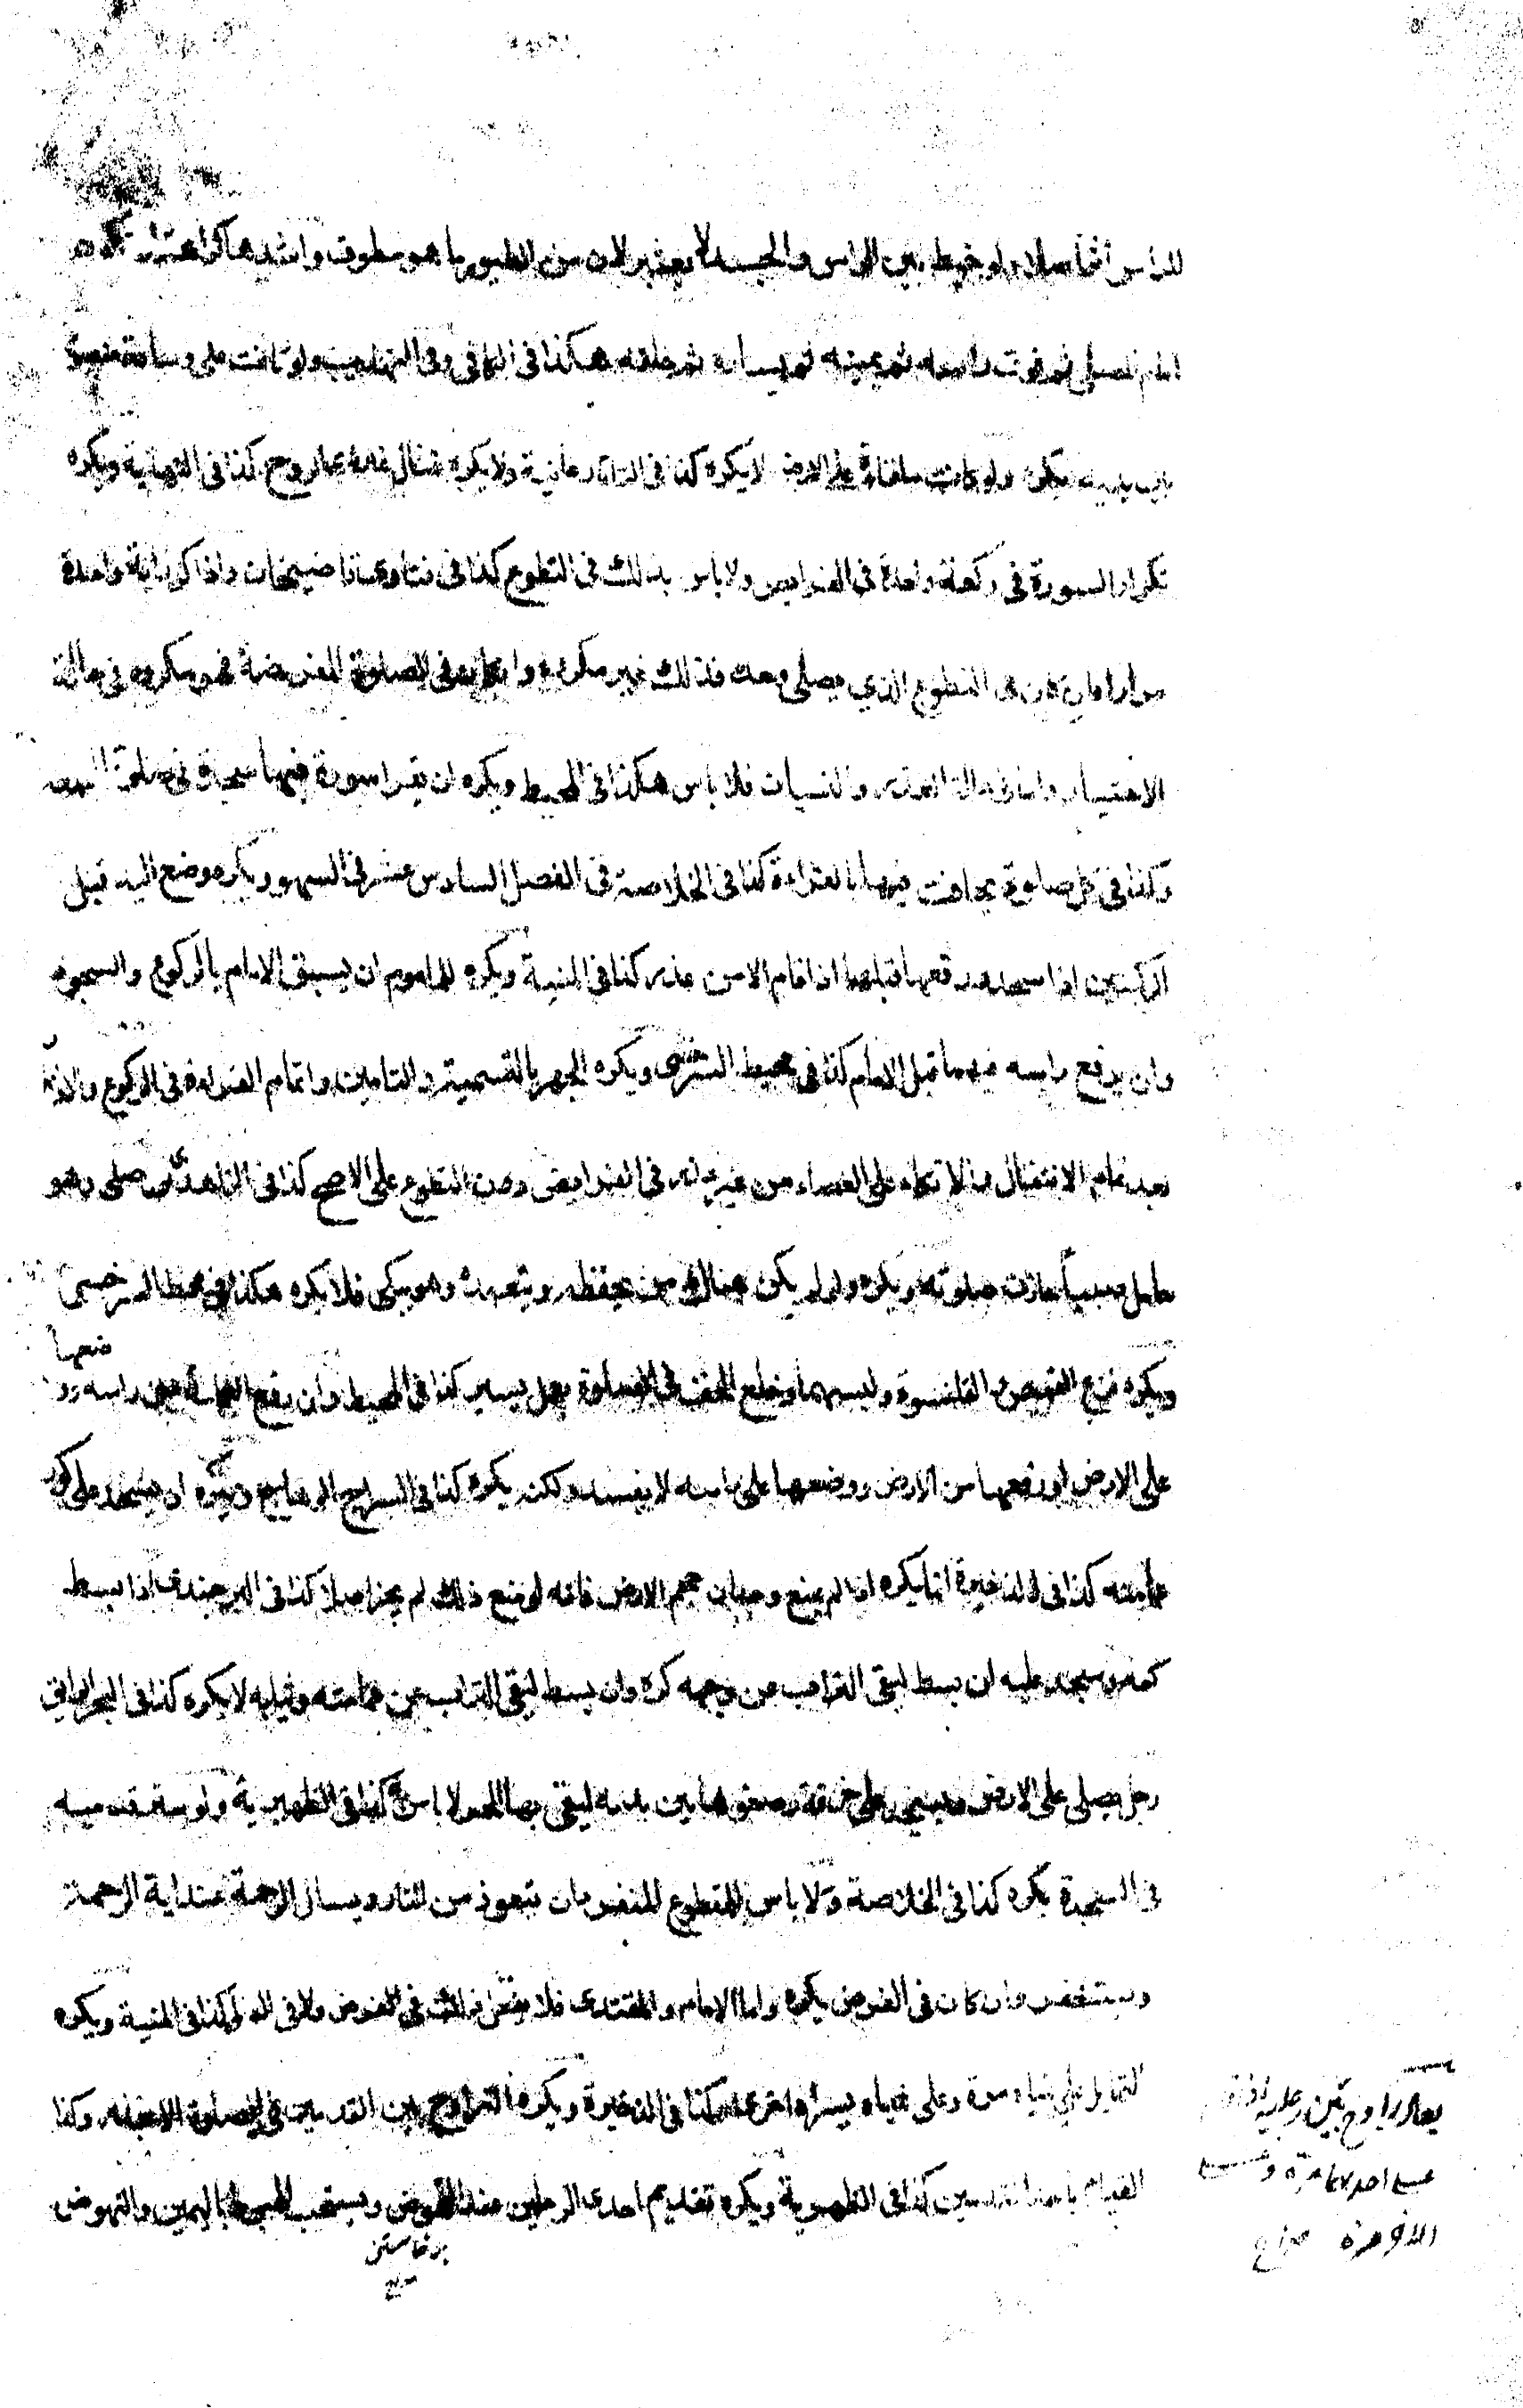 للراس اثر اصلا ولو خيط بين الراس والجسد لا يعتبر لان من الطيور ما هو مطوق واشدها كراهة ان تكون
امام المصلي ثم فوق راسه ثم يمينه ثم يساره ثم خلفه هكذا في الكافي وفي التهذيب ولو كانت على وسادة منصوبة
بين يديه يكره ولو كانت ملقاة على الارض لا يكره كذا في التتارخانية ولا يكره تمثال غير ذي روح كذا في النهاية ويكره
تكرار السورة في ركعة واحدة في الفرايض ولا باس بذالك في التطوع كذا في فتاوى قاضيخان واذا كرر اية واحدة
مرارا فان كان في التطوع الذي يصلي وحده فذالك غير مكروه وان كان في الصلوة الفريضة فهو مكروه في حالة
الاختيار واما في حالة العذر والنسيان فلا باس هكذا في المحيط ويكره ان يقرا سورة فيها سجدة في صلوة
وكذا في كل صلوة يخافت فيها بالقراءة كذا في الخلاصة في الفصل السادس عشر في السهو ويكره وضع اليد قبل
الركبتين اذا سجد ورفعها قبلهما اذا قام الا من عذر كذا في المنية ويكره للماموم ان يسبق الامام بالركوع والسجود
وان يرفع راسه فيهما قبل الامام كذا في محيط السرخسي ويكره الجهر بالتسمية والتامين واتمام القراءة في الركوع والاذكار
بعد تمام الانتقال والاتكاء على العصاء من غير عذر في الفرايض دون التطوع على الاصح كذا في الزاهدي صلى وهو
حامل صبيا جازت صلوته ويكره ولو لم يكن هناك من يحفظه ويتعهده وهو يبكي فلا يكره هكذا في محيط السرخسي
ويكره نزع القميص والقلنسوة ولبسهما وخلع الخف في الصلوة بعمل يسير كذا في المحيط وان رفع العمامة عن راسه ووضعها
على الارض او رفعها من الارض ووضعها على راسه لا يفسد ولكن يكره كذا في السراج الوهاج ويكره ان يسجد على كور
عمامته كذا في الذخيرة انما يكره اذا لم يمنع وجدان حجم الارض فانه لو منع ذلك لم يجز اصلا كذا في البرجندي اذا بسط
كمه وسجد عليه ان بسط ليقي التراب عن وجهه كره وان بسط ليقي التراب عن عمامته وثيابه لا يكره كذا في البحر الرايق
رجل يصلي على الارض ويسجد على خرقة وضعوها بين يديه ليتقي بها الحر لا باس به كذا في الظهيرية ولو ستر قدميه
في السجدة يكره كذا في الخلاصة ولا باس للمتطوع المنفرد ان يتعوذ من النار ويسال الرحمة عند اية الرحمة
ويستغفر وان كان في الفرض يكره واما الامام والمقتدى فلا يفعل ذالك في الفرض ولا في النفل كذا في المنية ويكره
التمايل على يمناه مرة وعلى يسراه اخرى كذا في الذخيرة ويكره التراوح بين القدمين في الصلوة الا بعذر وكذا
القيام باحدى القدمين كذا في الظهيرية ويكره تقديم احدى الرجلين عند النهوض ويستحب الهبوط باليمين والنهوض
برخاستن
صراح
يقال راوح بين رجليه اذا قام
على احدهما مرة وعلى
الاخرى مرة صراح